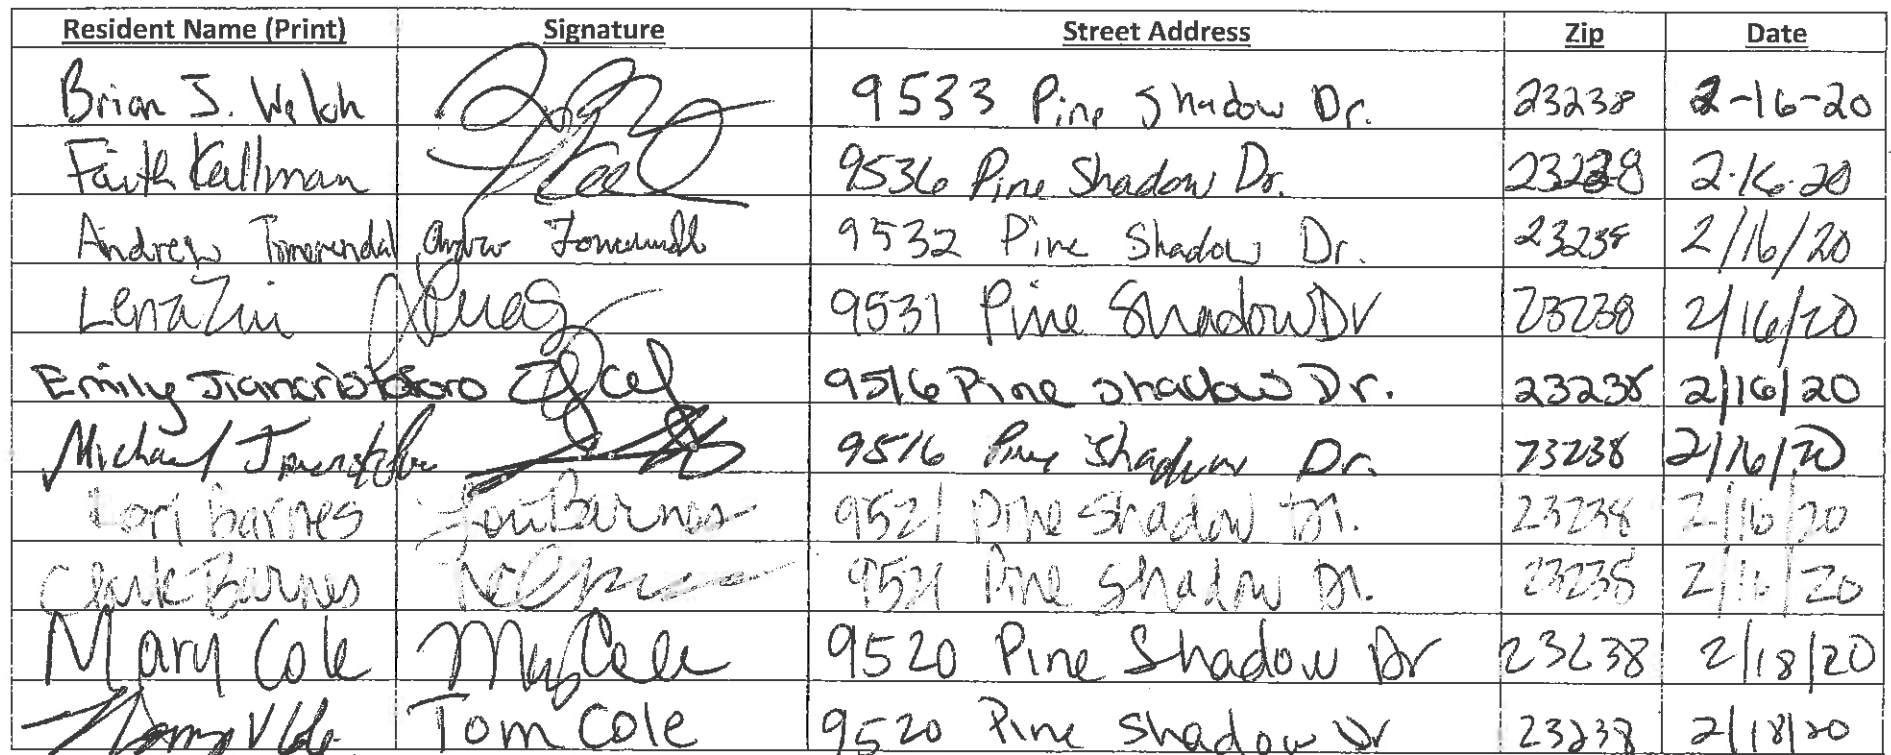 Resident Name (Print) Signature Street Address Zip Date
Brian J. Welch 9533 Pine Shadow Dr. 23238 2-16-20
Faith Kallman 9536 Pine Shadow Dr. 23238 2-16-20
Andrew 9532 Pine Shadow Dr. 23238 2/16/20
Lena 9531 Pine Shadow Dr 23238 2/16/20
Emily 9516 Pine Shadow Dr. 23238 2/16/20
Michael 9516 Pine Shadow Dr. 23238 2/16/20
Lori Barnes Lori Barnes 9521 Pine Shadow Dr. 23238 2/16/20
Clark Barnes 9521 Pine Shadow Dr. 23238 2/16/20
Mary Cole Mary Cole 9520 Pine Shadow Dr 23238 2/18/20
Tom Cole 9520 Pine Shadow Dr 23238 2/18/20